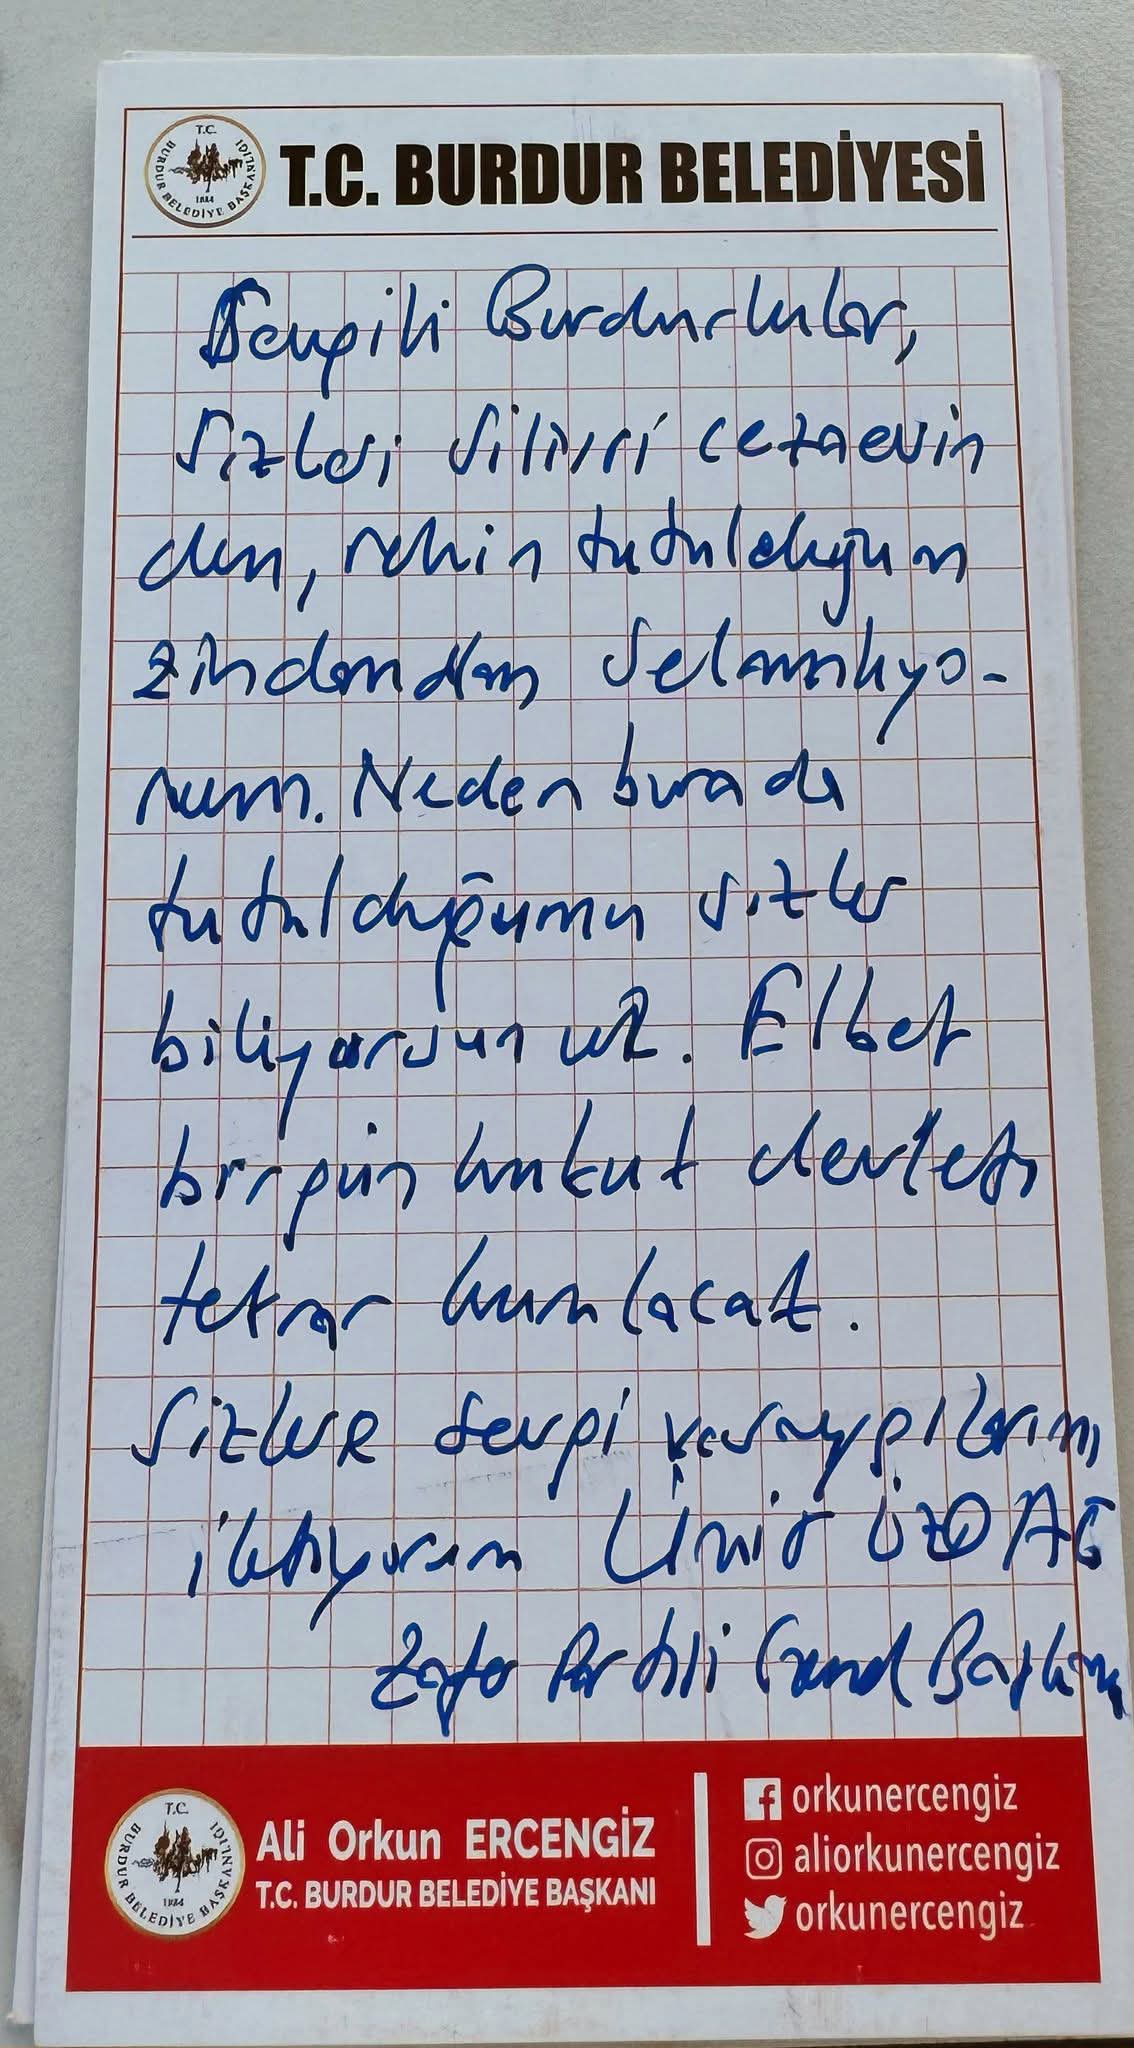 T.C. BURDUR BELEDİYE BAŞKANLIĞI
T.C. BURDUR BELEDİYESİ
Sevgili Burdurlular,
Sizleri Silivri cezaevin
den, rehin tutulduğum
zindandan selamlıyo-
rum. Neden burada
tutulduğumu sizler
biliyorsunuz. Elbet
birgün hukuk devleti
tekrar kurulacak.
Sizlere sevgi ve saygılarımı
iletiyorum Ümit ÖZDAĞ
Zafer Partisi Genel Başkanı
T.C. BURDUR BELEDİYE BAŞKANLIĞI
Ali Orkun ERCENGİZ
T.C. BURDUR BELEDİYE BAŞKANI
orkunercengiz
aliorkunercengiz
orkunercengiz